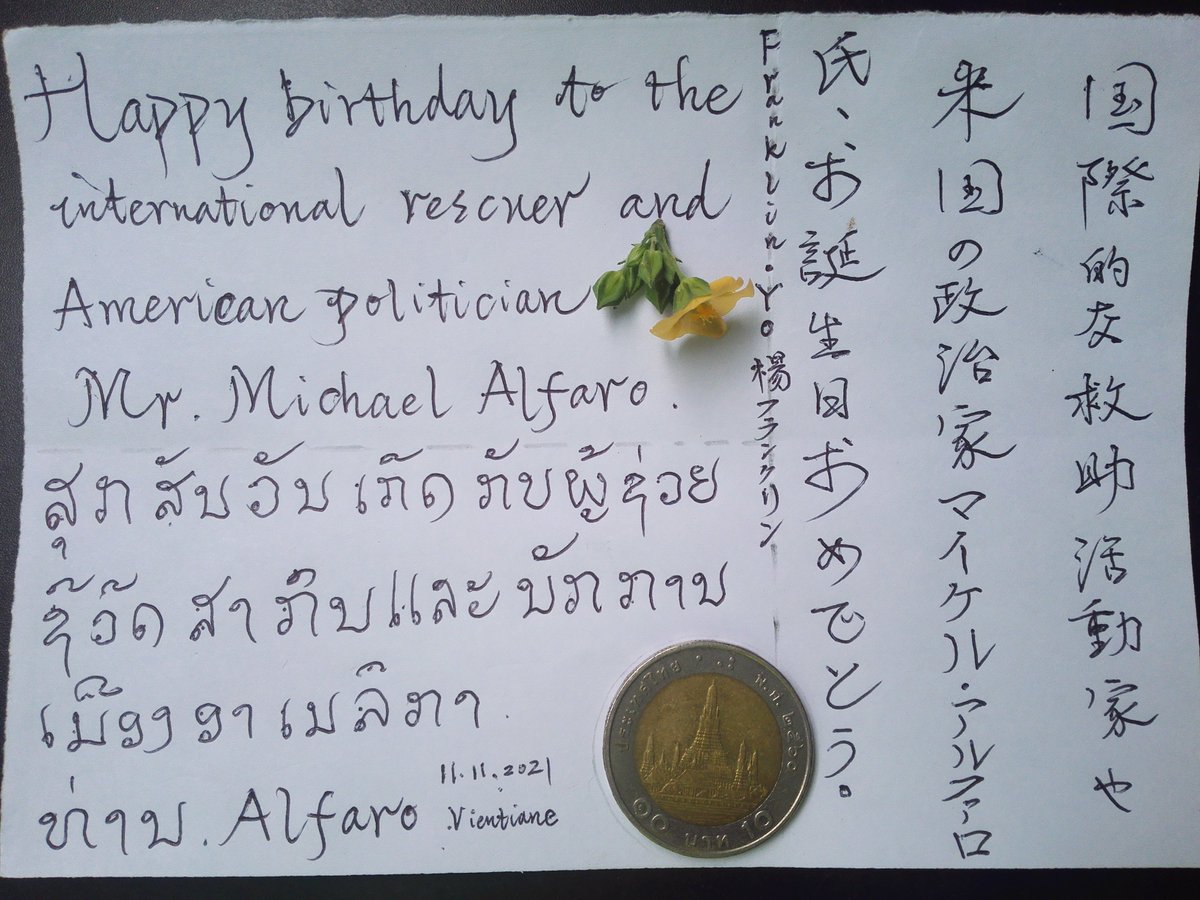 Happy birthday to the
international rescuer and
American politician
Mr. Michael Alfaro.
ສຸກ ສັນ ວັນ ເກີດ ກັບຜູ້ ຊ່ວຍ
ຊີວິດ ສາ ກົນ ແລະ ນັກການ
ເມືອງ ອາ ເມລິກາ.
ທ່ານ. Alfaro
11.11.2021
Vientiane
国際的な救助活動家や
米国の政治家マイケル・アルファロ
氏、お誕生日おめでとう。
Franklin.Yo 楊フランクリン
ประเทศไทย
พ.ศ. ๒๕๖๐
๑๐ บาท 10